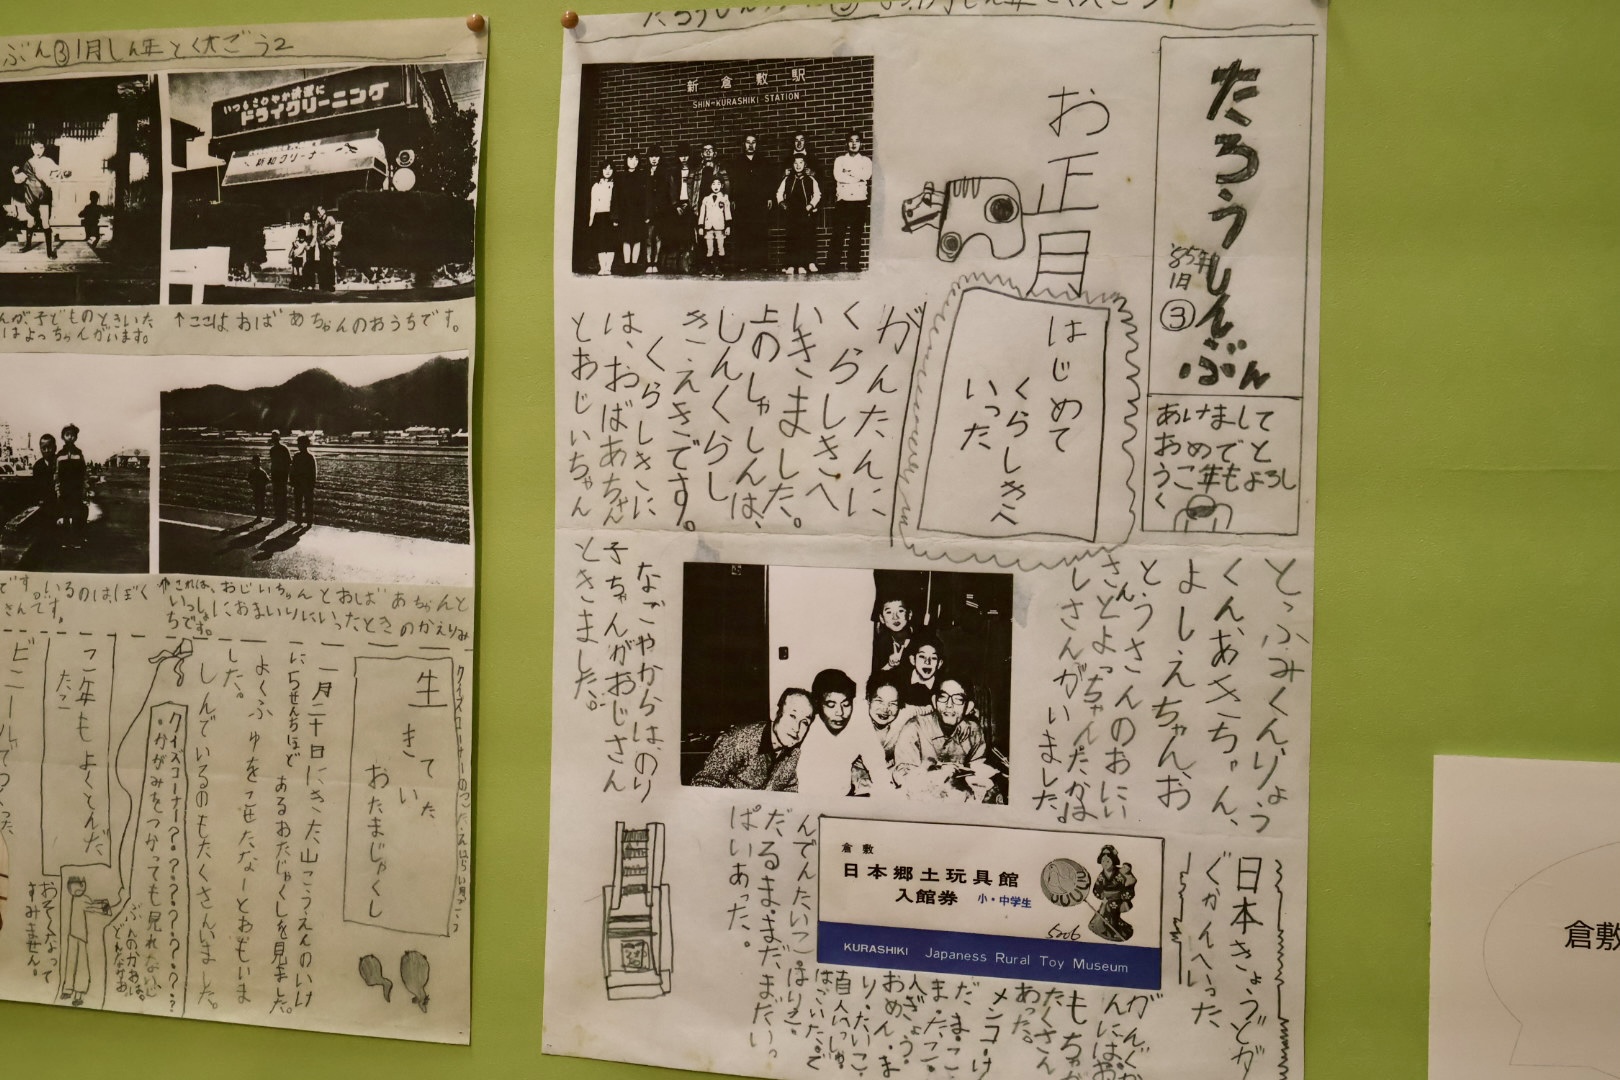 ぶん③1月しん年とく大ごう2
いつもさわやか後家に
ドライクリーニング
新和クリーナー
んが子どものときいた
はよっちゃんがいます。
↑ここは、おばあちゃんのおうちです。
です。いるのは、ぼく
さんです。
これは、おじいちゃんとおばあちゃんと
いっしょにおまいりにいったときのかえりみ
ちです。
生きていた
おたまじゃくし
一月二十日にきた山こうえんのいけ
したらせんちほど あるおたまじゃくしを見ました。
よくふゆをこせたなーとおもいま
した。
しんでいるのもたくさんいました。
クイズコーナー?
かがみをつかっても見れない
こ年もよくとんだ
たこ
ビニールでつくった
おそくなって
すみません。
たろうしんぶん
'85年
1月
③
あけまして
おめでと
うこ年もよろし
く
お正月
はじめて
くらしきへ
いった
新倉敷駅
SHIN-KURASHIKI STATION
がんたんに
くらしきへ
いきました。
上のしゃしんは、
しんくらし
きえきです。
くらしきに
は、おばあちゃん
とおじいちゃん
と、ふみくん、りょう
くん、あきちゃん、
よしえちゃん、お
とうさんのおにい
さんとよっちゃん、たかよ
しさんがいました。
なごやからは、のり
子ちゃんがおじさん
ときました。
日本きょうどが
ぐかんへいった
がんぐか
んには、お
もちゃが
たくさん
あった。
メンコ・け
ん玉・こ
ま・たこ・
人ぎょう・
おめん・ま
り・たいこ・
はごいた。で
んでんたいこ・はりこ・
だるま・まだ、まだ、いっ
ぱいあった。
倉敷
日本郷土玩具館
入館券 小・中学生
5206
KURASHIKI Japanese Rural Toy Museum
倉敷